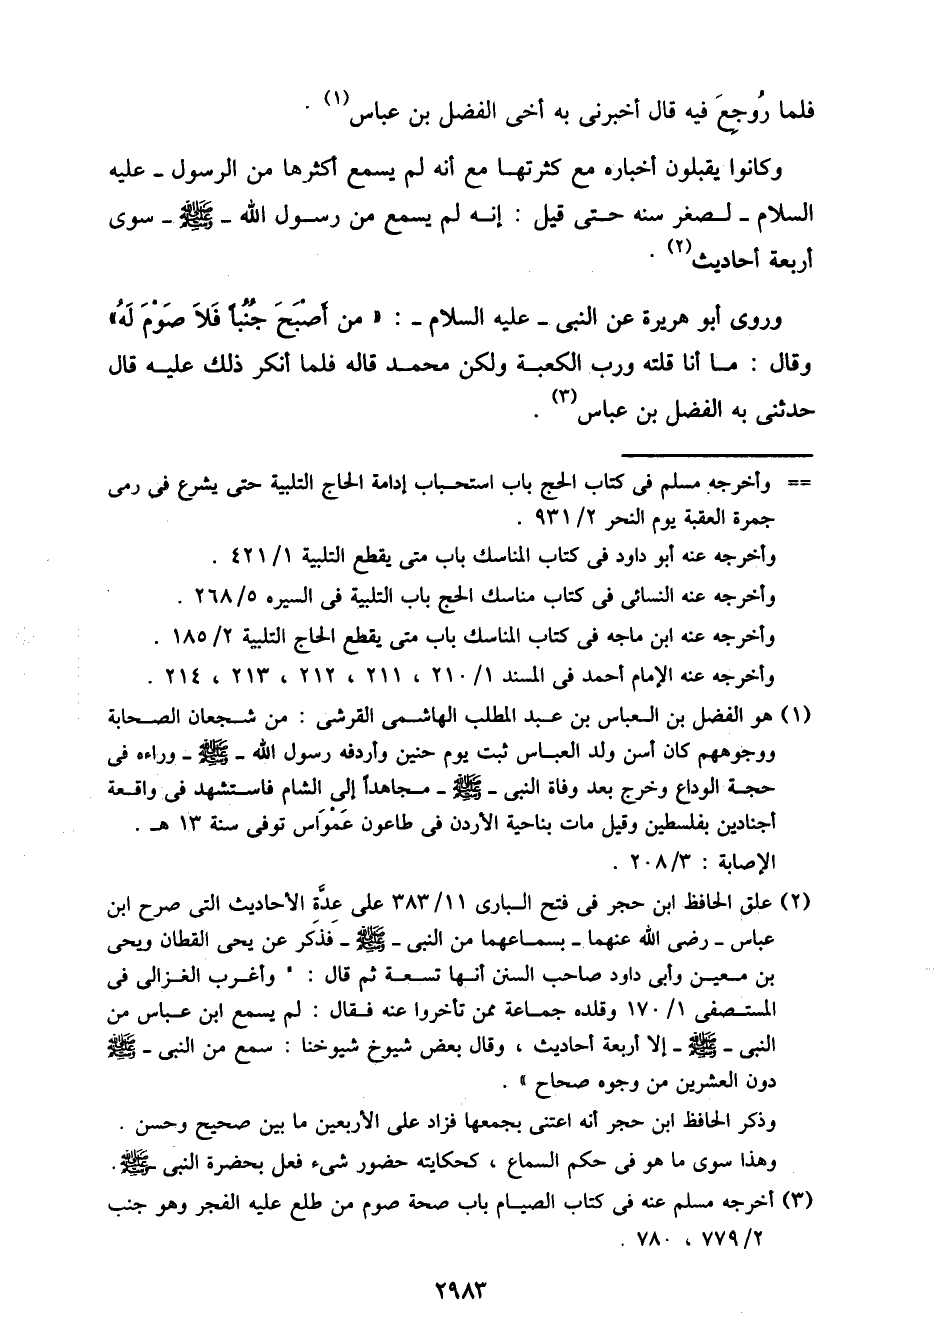 فلما رُوجِعَ فيه قال أخبرنى به أخى الفضل بن عباس(١) .
وكانوا يقبلون أخباره مع كثرتهـا مع أنه لم يسمع أكثرها من الرسول ـ عليه
السلام ـ لـصغر سنه حـتى قيل : إنـه لم يسمع من رسـول الله ـ ﷺ ـ سوى
أربعة أحاديث(٢) .
وروى أبو هريرة عن النبى ـ عليه السلام ـ : « من أَصْبَحَ جُنُباً فَلاَ صَوْمَ لَهُ»
وقال : مـا أنا قلته ورب الكعبـة ولكن محمـد قاله فلما أنكر ذلك عليـه قال
حدثنى به الفضل بن عباس(٣) .
== وأخرجه مسلم فى كتاب الحج باب استحـباب إدامة الحاج التلبية حتى يشرع فى رمى
جمرة العقبة يوم النحر ٢/ ٩٣١ .
وأخرجه عنه أبو داود فى كتاب المناسك باب متى يقطع التلبية ١/ ٤٢١ .
وأخرجه عنه النسائى فى كتاب مناسك الحج باب التلبية فى السيره ٥/ ٢٦٨ .
وأخرجه عنه ابن ماجه فى كتاب المناسك باب متى يقطع الحاج التلبية ٢/ ١٨٥ .
وأخرجه عنه الإمام أحمد فى المسند ١/ ٢١٠ ، ٢١١ ، ٢١٢ ، ٢١٣ ، ٢١٤ .
(١) هو الفضل بن الـعباس بن عبد المطلب الهاشـمى القرشى : من شـجعان الصـحابة
ووجوههم كان أسن ولد العباس ثبت يوم حنين وأردفه رسول الله ـ ﷺ ـ وراءه فى
حجـة الوداع وخرج بعد وفاة النبى ـ ﷺ ـ مـجاهداً إلى الشام فاسـتشهد فى واقـعة
أجنادين بفلسطين وقيل مات بناحية الأردن فى طاعون عَمْوَاس توفى سنة ١٣ هـ .
الإصابة : ٣/ ٢٠٨ .
(٢) علق الحافظ ابن حجر فى فتح البارى ١١/ ٣٨٣ على عِدَّةِ الأحاديث التى صرح ابن
عباس ـ رضى الله عنهما ـ بسمـاعهما من النبى ـ ﷺ ـ فذكر عن يحى القطان ويحى
بن مـعين وأبى داود صاحب السنن أنـها تسعـة ثم قال : " وأغـرب الغـزالى فى
المستـصفى ١/ ١٧٠ وقلده جمـاعة ممن تأخروا عنه فـقال : لم يسمع ابن عـباس من
النبى ـ ﷺ ـ إلا أربعة أحاديث ، وقال بعض شيوخ شيوخنا : سمع من النبى ـ ﷺ
دون العشرين من وجوه صحاح » .
وذكر الحافظ ابن حجر أنه اعتنى بجمعها فزاد على الأربعين ما بين صحيح وحسن .
وهذا سوى ما هو فى حكم السماع ، كحكايته حضور شىء فعل بحضرة النبى ـ ﷺ.
(٣) أخرجه مسلم عنه فى كتاب الصيـام باب صحة صوم من طلع عليه الفجر وهو جنب
٢/ ٧٧٩ ، ٧٨٠ .
٢٩٨٣